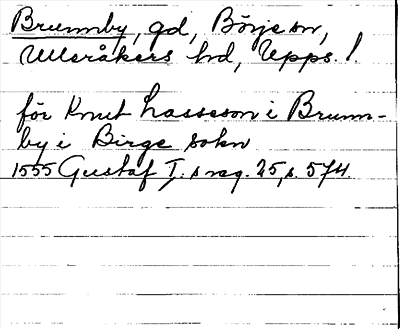 Brunnby, gd, Börje sn,
Ulleråkers hd, Upps. l.
för Knut Lasseson i Brunn-
by i Birge sokn
1555 Gustaf I:s reg. 25, s. 574.